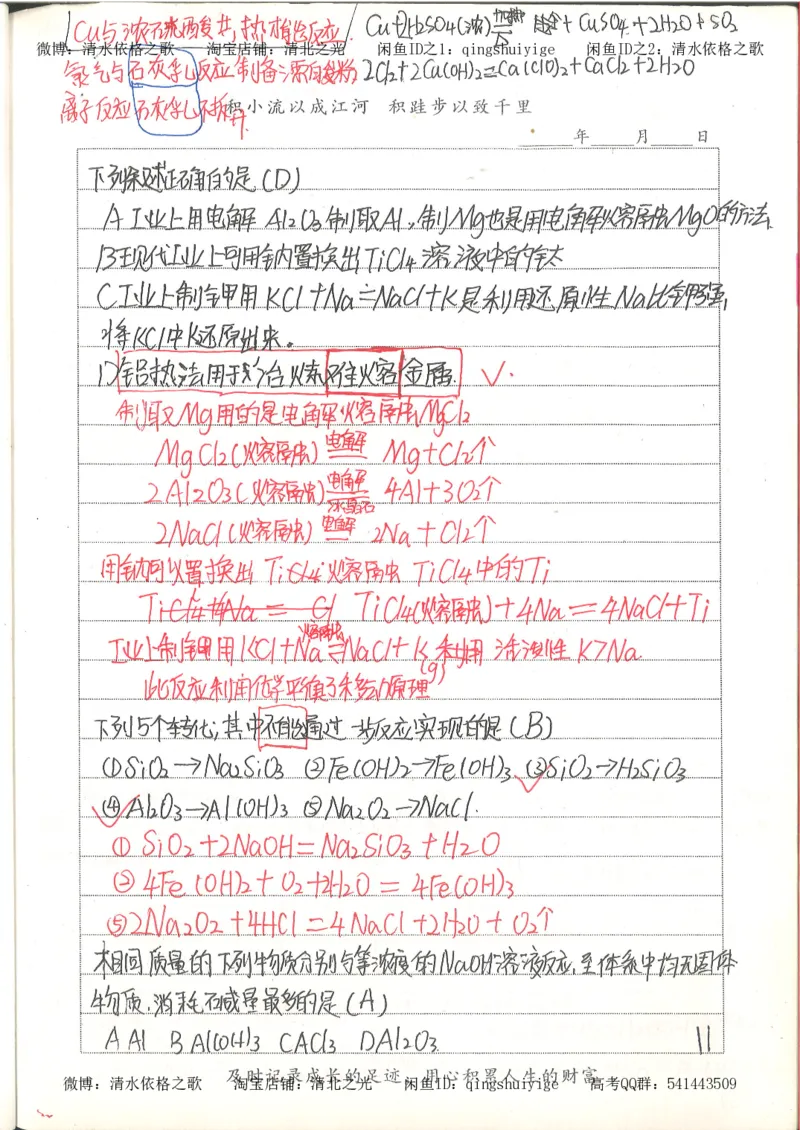 Cu与浓硫酸共热才能反应. Cu+2H2SO4(浓)加热=CuSO4+2H2O+SO2
微博：清水依格之歌 淘宝店铺：清北之光 闲鱼ID之1：qingshuiyige 闲鱼ID之2：清水依格之歌
氯气与石灰乳反应制备漂白粉 2Cl2+2Ca(OH)2=Ca(ClO)2+CaCl2+2H2O
离子反应石灰乳不拆开. 积小流以成江河 积跬步以致千里
年 月 日
下列叙述正确的是(D)
A工业上用电解Al2O3制取Al,制Mg也是用电解熔融MgO的方法.
B现代工业上可用钠置换出TiCl4溶液中的钛
C工业上制钾用KCl+Na=NaCl+K是利用还原性Na比钾强,
将KCl中K还原出来.
D铝热法用于冶炼难熔金属. √.
制取Mg用的是电解熔融MgCl2
MgCl2(熔融)电解=Mg+Cl2↑
2Al2O3(熔融)电解=冰晶石 4Al+3O2↑
2NaCl(熔融)电解=2Na+Cl2↑
用钠可以置换出TiCl4熔融TiCl4中的Ti
TiCl4+4Na= Cl TiCl4(熔融)+4Na=4NaCl+Ti
工业上制钾用KCl+Na熔融⇌NaCl+K(g)利用 活泼性K>Na
此反应利用化学平衡移动原理
下列5个转化,其中不能通过一步反应实现的是(B)
①SiO2→Na2SiO3 ②Fe(OH)2→Fe(OH)3 ③SiO2→H2SiO3
④Al2O3→Al(OH)3 ⑤Na2O2→NaCl.
①SiO2+2NaOH=Na2SiO3+H2O
②4Fe(OH)2+O2+2H2O=4Fe(OH)3
⑤2Na2O2+4HCl=4NaCl+2H2O+O2↑
相同质量的下列物质分别与等浓度的NaOH溶液反应,至体系中均无固体
物质.消耗碱量最多的是(A)
A Al B Al(OH)3 C AlCl3 D Al2O3 11
及时记录成长的足迹 用心积累人生的财富
微博：清水依格之歌 淘宝店铺：清北之光 闲鱼ID：qingshuiyige 高考QQ群：541443509